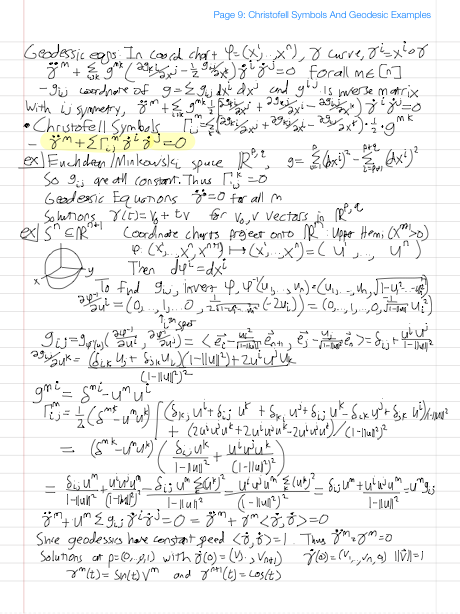 Page 9: Christofell Symbols And Geodesic Examples
Geodessic eqns: In coord chart φ=(x¹,...,xⁿ), γ curve, γⁱ=xⁱ∘γ
γ̈^m + Σ_{ijk} g^{mk} (∂g_{ki}/∂x^j - ½ ∂g_{ij}/∂x^k) γ̇^i γ̇^j = 0 for all m∈[n]
- g_{ij} coordinate of g=Σ g_{ij} dx^i dx^j and g^{ij} is inverse matrix
With ij symmetry, γ̈^m + Σ_{ijk} g^{mk} ½(∂g_{ki}/∂x^j + ∂g_{kj}/∂x^i - ∂g_{ij}/∂x^k) γ̇^i γ̇^j = 0
• Christofell Symbols Γ_{ij}^m = Σ_k (∂g_{ki}/∂x^j + ∂g_{kj}/∂x^i - ∂g_{ij}/∂x^k) · ½ · g^{mk}
- γ̈^m + Σ Γ_{ij}^m γ̇^i γ̇^j = 0
ex) Euclidean/Minkowski space ℝ^{p,q}, g = Σ_{i=1}^p (dx^i)² - Σ_{i=p+1}^{p+q} (dx^i)²
So g_{ij} are all constant. Thus Γ_{ij}^k = 0
Geodesic Equations γ̈^m=0 for all m
Solutions γ(t) = v₀ + tv for v₀, v vectors in ℝ^{p,q}
ex) Sⁿ ⊆ ℝ^{n+1} Coordinate charts project onto ℝⁿ. Upper Hemi (x^{n+1}>0)
φ: (x¹, ..., xⁿ, x^{n+1}) ↦ (x¹, ..., xⁿ) = (u¹, ..., uⁿ)
x y
Then dφ^i = dx^i
To find g_{ij}, invert φ, φ⁻¹(u₁, ..., uₙ) = (u₁, ..., uₙ, √(1-u₁²...-uₙ²))
∂φ⁻¹/∂u^i = (0, ..., 1, ..., 0, 1/(2√(1-u₁²-...-uₙ²)) (-2u_i)) = (0, ..., 1, ..., 0, -1/√(1-||u||²) u_i)
i^{th} spot
g_{ij} = g_{φ⁻¹(u)} (∂φ⁻¹/∂u^i, ∂φ⁻¹/∂u^j) = <e⃗_i - u_i/√(1-||u||²) e⃗_{n+1}, e⃗_j - u_j/√(1-||u||²) e⃗_{n+1}> = δ_{ij} + u^i u^j/(1-||u||²)
∂g_{ij}/∂u^k = ((δ_{ik} u_j + δ_{jk} u_i)(1-||u||²) + 2u^i u^j u^k)/(1-||u||²)²
g^{mi} = δ^{mi} - u^m u^i
Γ_{ij}^m = ½ (δ^{mk} - u^m u^k) [(δ_{kj} u^i + δ_{ij} u^k + δ_{ki} u^j + δ_{ij} u^k - δ_{ik} u^j - δ_{jk} u^i)/(1-||u||²)
+ (2u^i u^j u^k + 2u^i u^j u^k - 2u^i u^j u^k)/(1-||u||²)²]
= (δ^{mk} - u^m u^k) (δ_{ij} u^k/(1-||u||²) + u^i u^j u^k/(1-||u||²)²)
= δ_{ij} u^m/(1-||u||²) + u^i u^j u^m/(1-||u||²)² - δ_{ij} u^m Σ(u^k)²/(1-||u||²) - u^i u^j u^m Σ(u^k)²/(1-||u||²)² = δ_{ij} u^m + u^i u^j u^m/(1-||u||²) = u^m g_{ij}
γ̈^m + u^m Σ g_{ij} γ̇^i γ̇^j = 0 = γ̈^m + γ^m <γ̇, γ̇> = 0
Since geodessics have constant speed <γ̇, γ̇> = 1. Thus γ̈^m + γ^m = 0
Solutions at p=(0,...,0,1) with γ̇(0) = (v₁, ..., v_{n+1}) γ̇(0) = (v₁, ..., vₙ, 0) ||v⃗||=1
γ^m(t) = sin(t) v^m and γ^{n+1}(t) = cos(t)